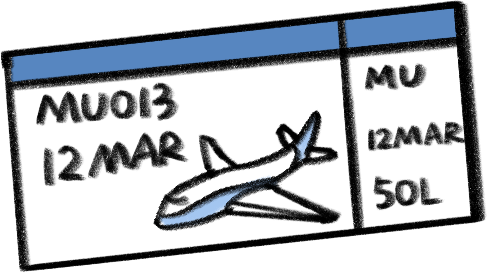 MU013
12MAR
MU
12MAR
50L